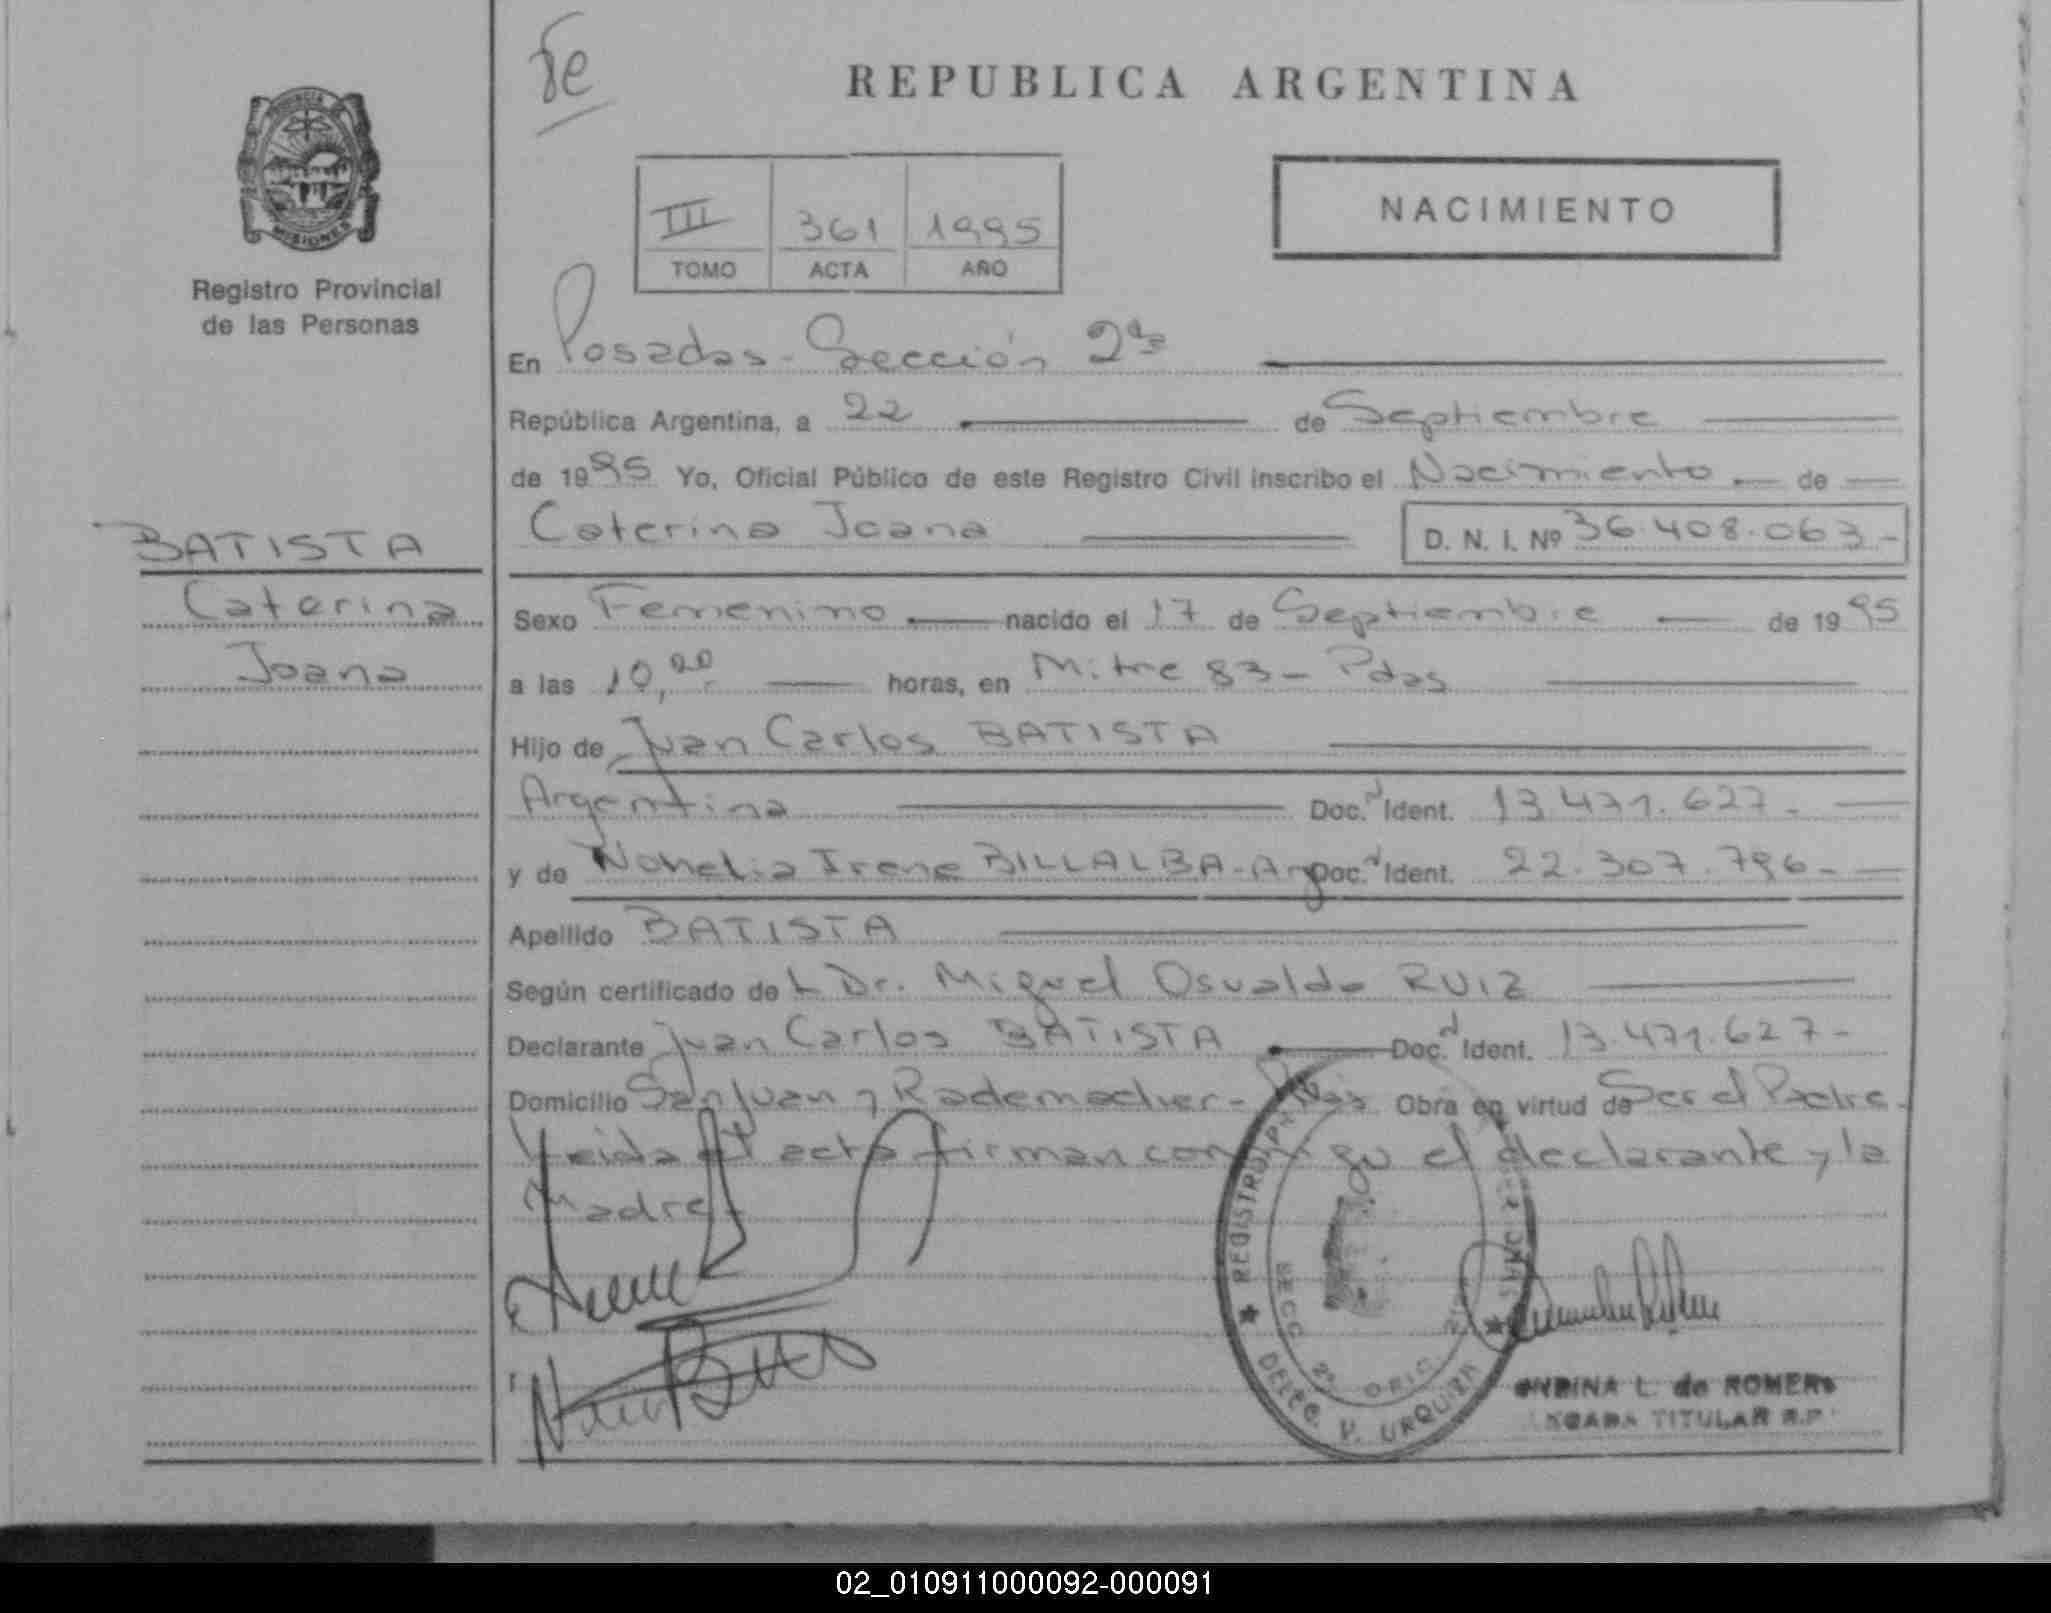 Fe
REPUBLICA ARGENTINA
PROVINCIA
MISIONES
III 361 1995
TOMO ACTA AÑO
NACIMIENTO
Registro Provincial
de las Personas
En Posadas - Sección 2da
República Argentina, a 22 de Septiembre
de 1995 Yo, Oficial Público de este Registro Civil inscribo el Nacimiento de
Caterina Joana D. N. I. Nº 36.408.063-
BATISTA
Caterina
Joana
Sexo Femenino nacido el 17 de Septiembre de 1995
a las 10,20 horas, en Mitre 83 - Pdas
Hijo de Juan Carlos BATISTA
Argentina Doc. d Ident. 13.471.627-
y de Nohelia Irene BILLALBA - Arg Doc. d Ident. 22.307.796-
Apellido BATISTA
Según certificado del Dr. Miguel Osvaldo RUIZ
Declarante Juan Carlos BATISTA Doc. d Ident. 13.471.627-
Domicilio San Juan y Rademacher - Pdas Obra en virtud de Ser el Padre.
Leida el acta firman conmigo el declarante y la
Madre
REGISTRO
SECC 2ª
DPTO.
URQUIZA
ONDINA L. de ROMERO
TITULAR R.P.
02_010911000092-000091